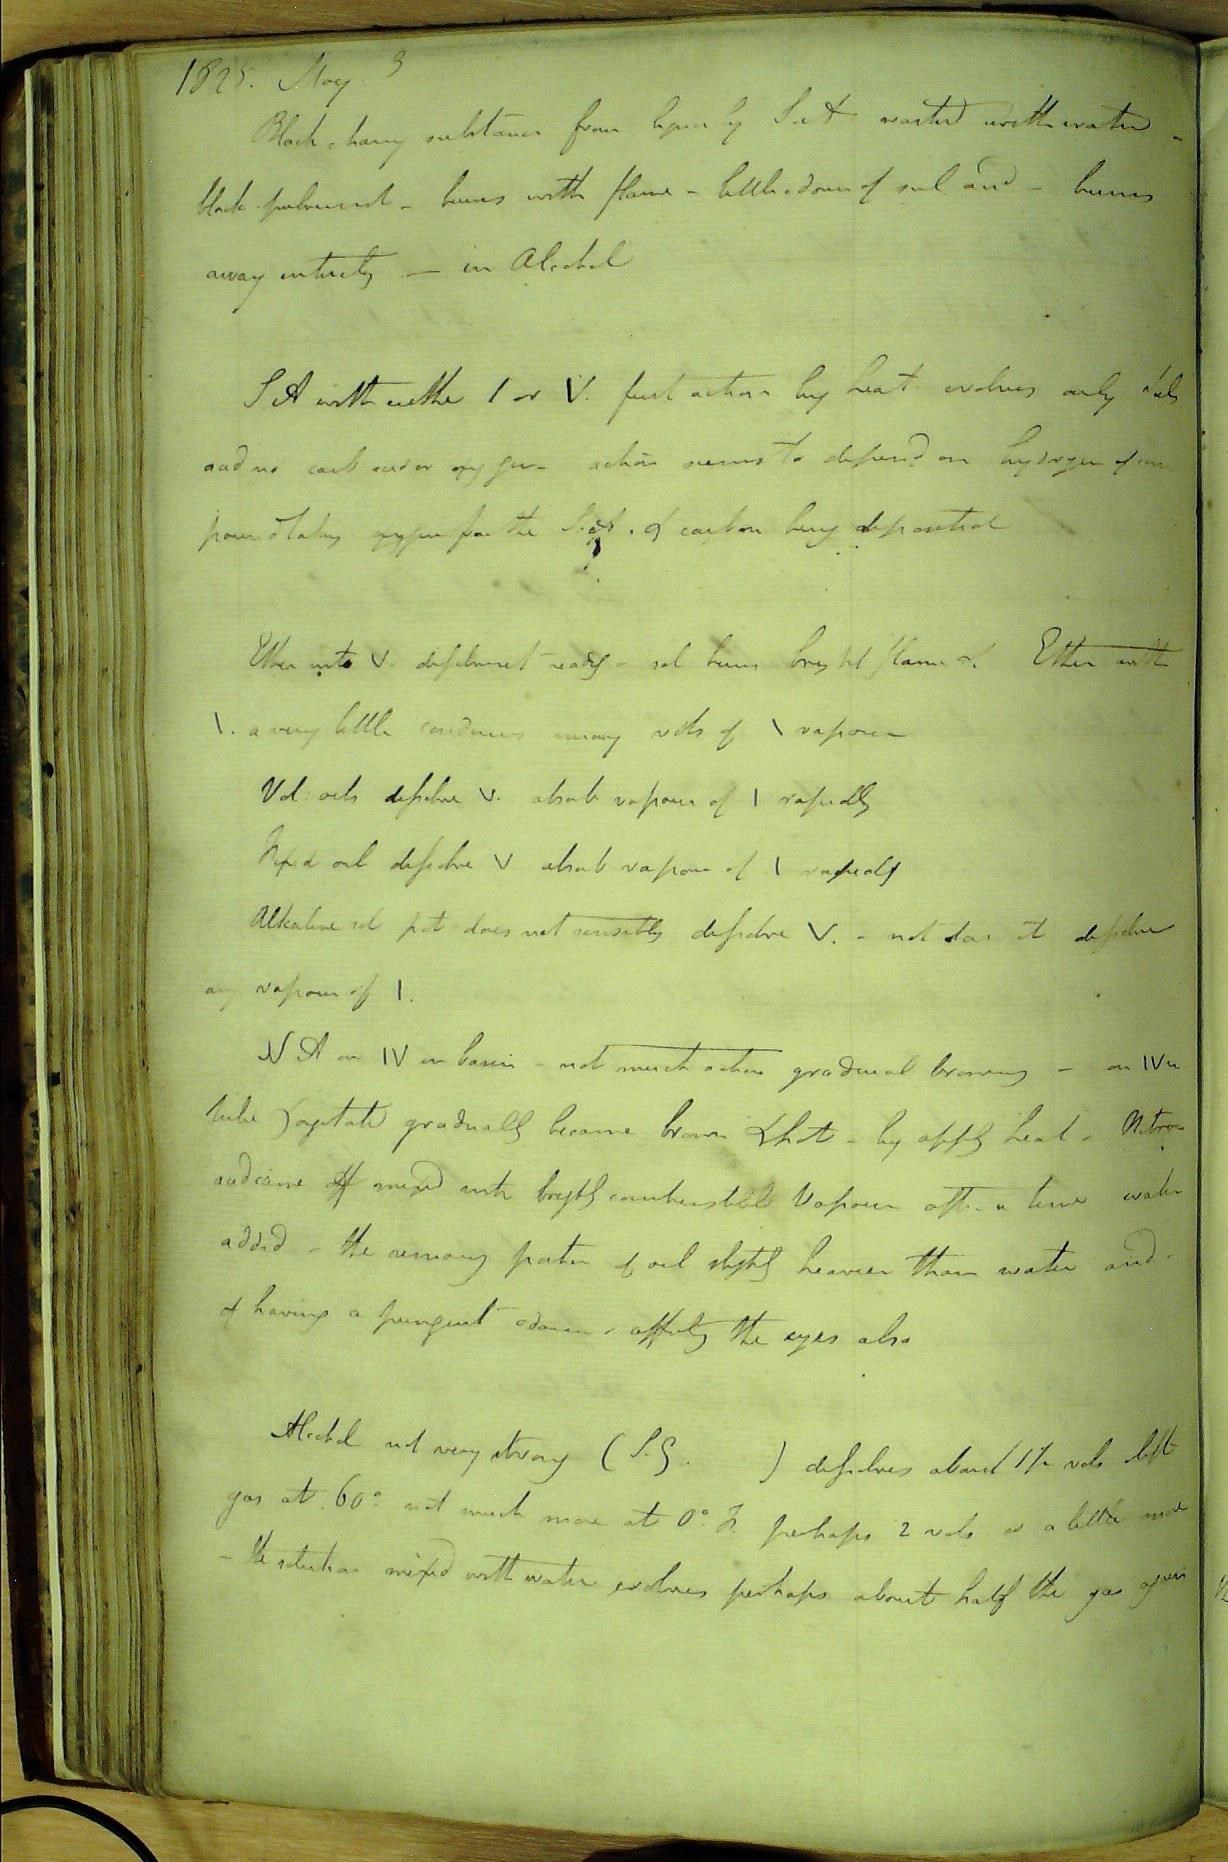 1825. May 3
Black, chary substance from liquor by S A washed with water -
black pulverulent - burns with flame - little odour of sul acid - burns
away entirely - in Alcohol
S A with either I or V. first action by heat evolves only sul
and no carb acid or oxy gen - action seems to depend on hydrogen of com
pound taking oxygen from the S. A. & carbon being deposited
Ether with V. dissolves it readily - sol burns bright flame &c Ether with
\. a very little condenses many vols of \ vapour
Vol: oils dissolve V. absorb vapour of \ rapidly
Fixed oil dissolve V absorb vapour of \ rapidly
Alkaline sol pot does not sensibly dissolve V. - nor does it dissolve
any vapour of \.
N A on IV in basin - not much action gradual browning - on IV in
tube & agitated gradually became brown & hot - by applg heat - Nitrous
acid came off mixed with brightly combustible Vapour after a time water
added - the remaing portion of oil slightly heavier than water and
& having a pungent odour - affectg the eyes also
Alcohol not very strong (S.G. ) dissolves about 1 1/2 vols
gas at 60° not much more at 0° F. perhaps 2 vols or a little more
- the solution mixed with water evolves perhaps about half the gas again